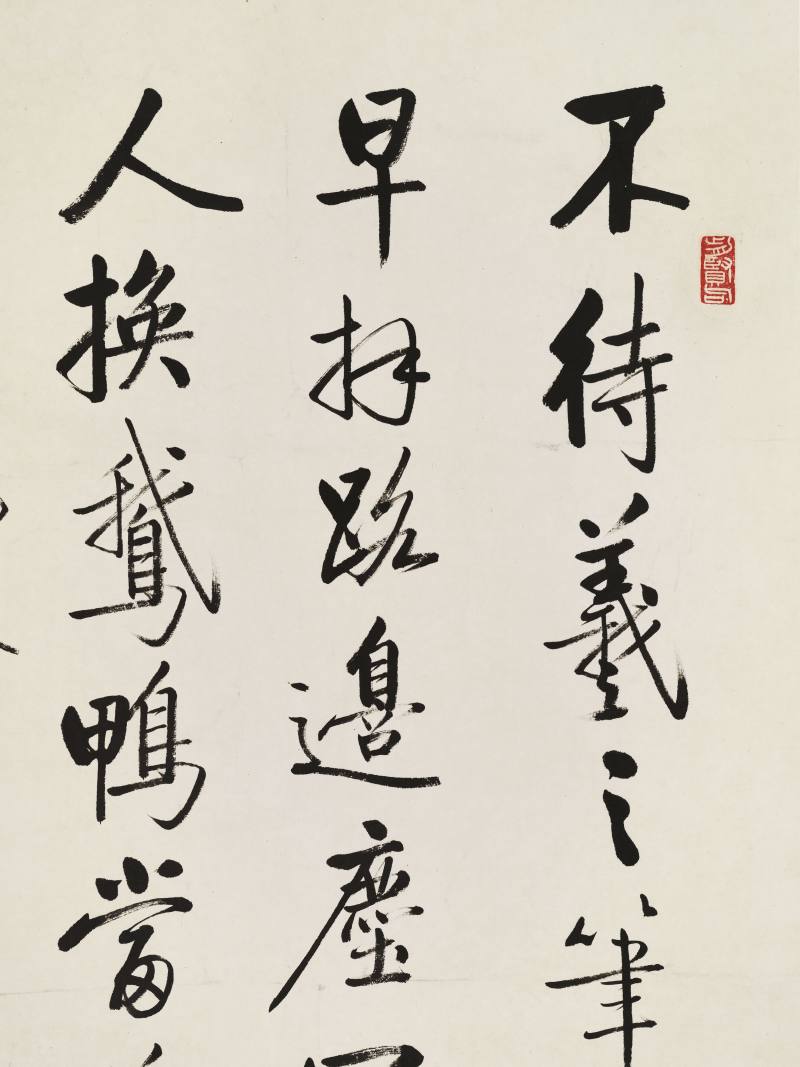 不待羲之筆
早拜路邊塵
人換鵝鴨當